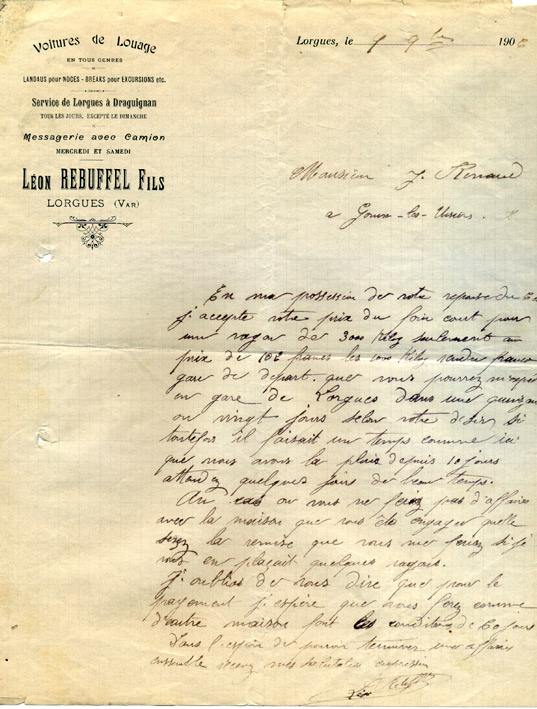 Voitures de Louage
EN TOUS GENRES
LANDAUS pour NOCES - BREAKS pour EXCURSIONS etc.
Service de Lorgues à Draguignan
TOUS LES JOURS, EXCEPTÉ LE DIMANCHE
Messagerie avec Camion
MERCREDI ET SAMEDI
LÉON REBUFFEL FILS
LORGUES (VAR)
Lorgues, le 9 9bre 190
Monsieur J. Renaud
a Goux-les-Usiers.
En ma possession de votre reponse du
j'accepte votre prix du foin cout pour
un vagon de 3000 Kilog seulement au
prix de 102 francs les 1000 Kilog rendu franco
gare de depart. que vous pourrez
en gare de Lorgues dans une
ou vingt jours selon votre desir si
toutefois il faisait un temps comme ici
que nous avons la pluie depuis 10 jours
attendez quelques jours de beau temps.
Au cas ou vous ne feriez pas d'affaires
avec la maison que vous êtes engager quelle
serez la remise que vous me feriez si je
vous en plaçait quelques vagons.
J'oubliez de vous dire que pour le
payement j'espère que vous ferez comme
d'autre maison sont les conditions de 60 jours
Dans l'espoir de pouvoir terminer une affaire
ensemble recevez mes salutations
Léon